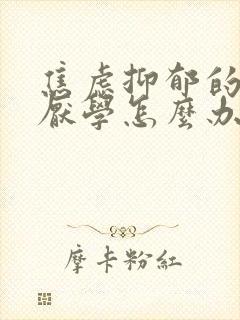 焦虑抑郁的
厭學怎麼办
摩卡粉紅